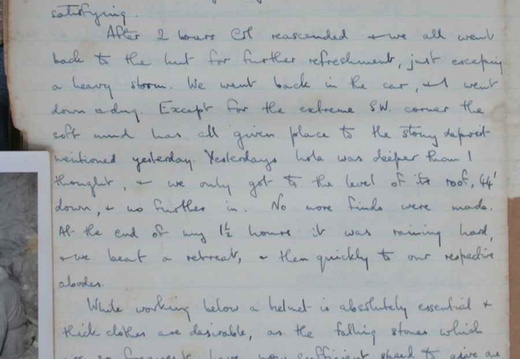 satisfying.
After 2 hours CSI reascended & we all went
back to the hut for further refreshment, just escaping
a heavy storm. We went back in the car, & I went
down a-dig. Except for the extreme SW. corner the
soft mud has all given place to the stony deposit
mentioned yesterday. Yesterdays hole was deeper than I
thought, & we only got to the level of its roof, 44'
down, & no further in. No more finds were made.
At the end of my 1½ hours it was raining hard,
& we beat a retreat, & then quickly to our respective
abodes.
While working below a helmet is absolutely essential &
thick clothes are desirable, as the falling stones which
are so frequent have very sufficient speed to give one